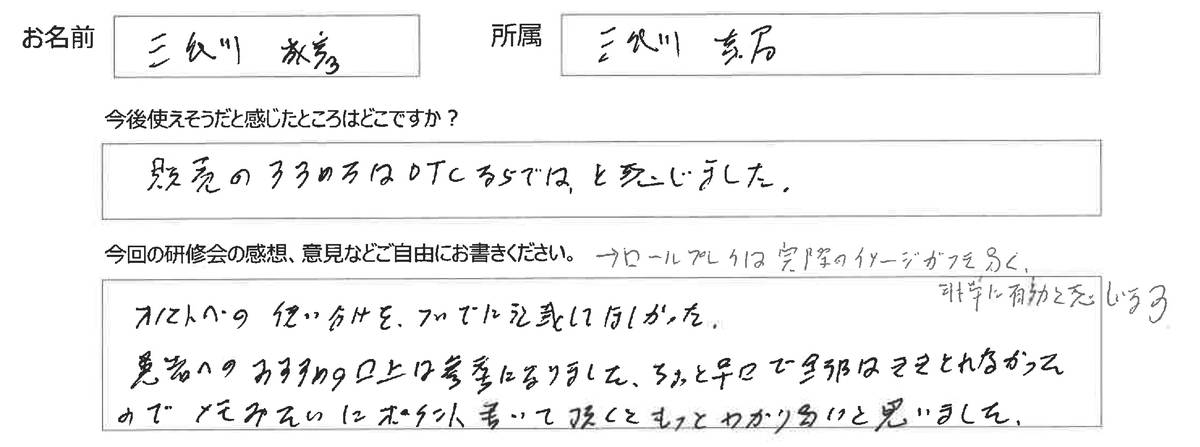 お名前 三代川 成彦
所属 三代川薬局
今後使えそうだと感じたところはどこですか？
販売のすすめ方はOTCならでは、と感じました。
今回の研修会の感想、意見などご自由にお書きください。
→ロールプレイは実際のイメージがつき易く、
非常に有効と感じる
の使い分けを、ついでに記載してほしかった。
患者へのおすすめの口上は参考になりました、ちょっと早口で全部はききとれなかった
のでメモみたいにポイント書いて頂くともっとわかり易いと思いました。